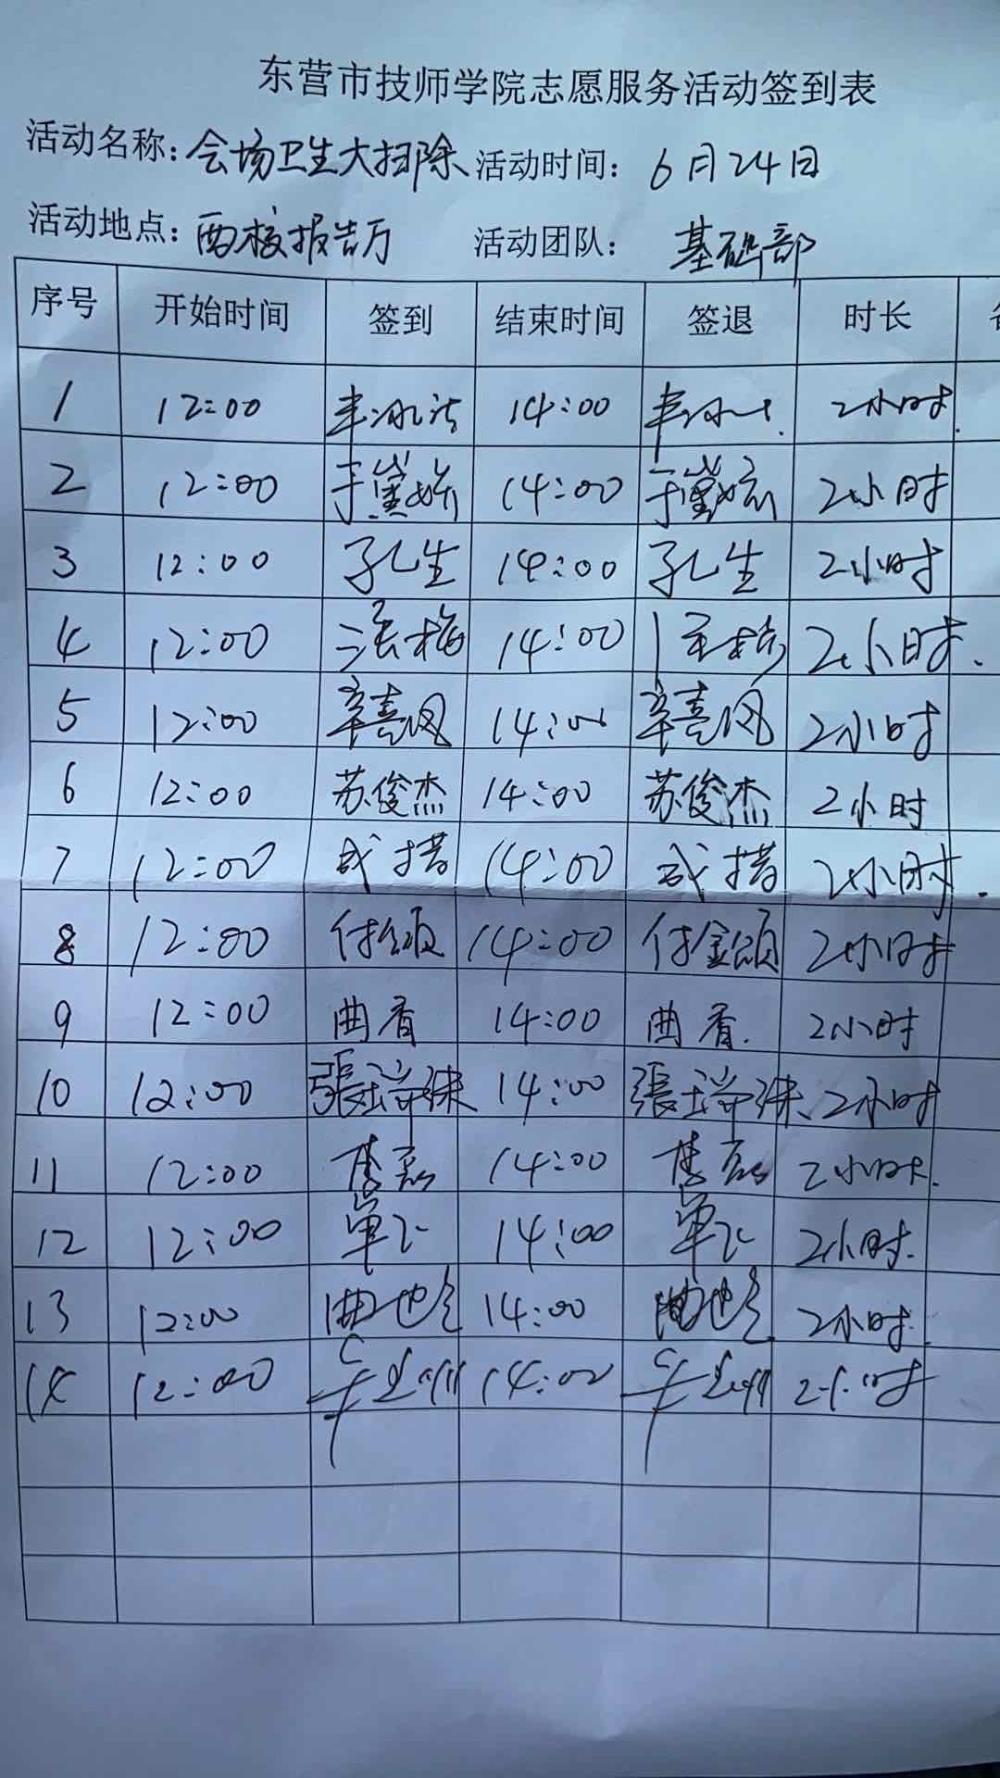 东营市技师学院志愿服务活动签到表
活动名称：会场卫生大扫除 活动时间：6月24日
活动地点：西校报告厅 活动团队：基础部
序号 开始时间 签到 结束时间 签退 时长
1 12:00 14:00 2小时
2 12:00 于黛 14:00 于黛 2小时
3 12:00 孔生 14:00 孔生 2小时
4 12:00 张梅 14:00 2小时.
5 12:00 辛喜凤 14:00 辛喜凤 2小时
6 12:00 苏俊杰 14:00 苏俊杰 2小时
7 12:00 14:00 2小时.
8 12:00 付 14:00 付金颂 2小时
9 12:00 曲香 14:00 曲香. 2小时
10 12:00 張瑞 14:00 張瑞 2小时
11 12:00 14:00 2小时.
12 12:00 单 14:00 单 2小时.
13 12:00 曲 14:00 曲 2小时.
14 12:00 14:00 2小时